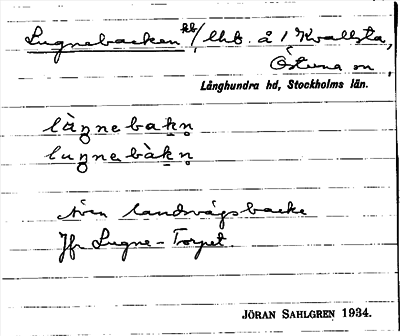 Lugnebacken kb/ lhb. å 1 Kvallsta,
Östuna sn,
Långhundra hd, Stockholms län.
även landsvägsbacke
Jfr Lugne-Torpet
JÖRAN SAHLGREN 1934.